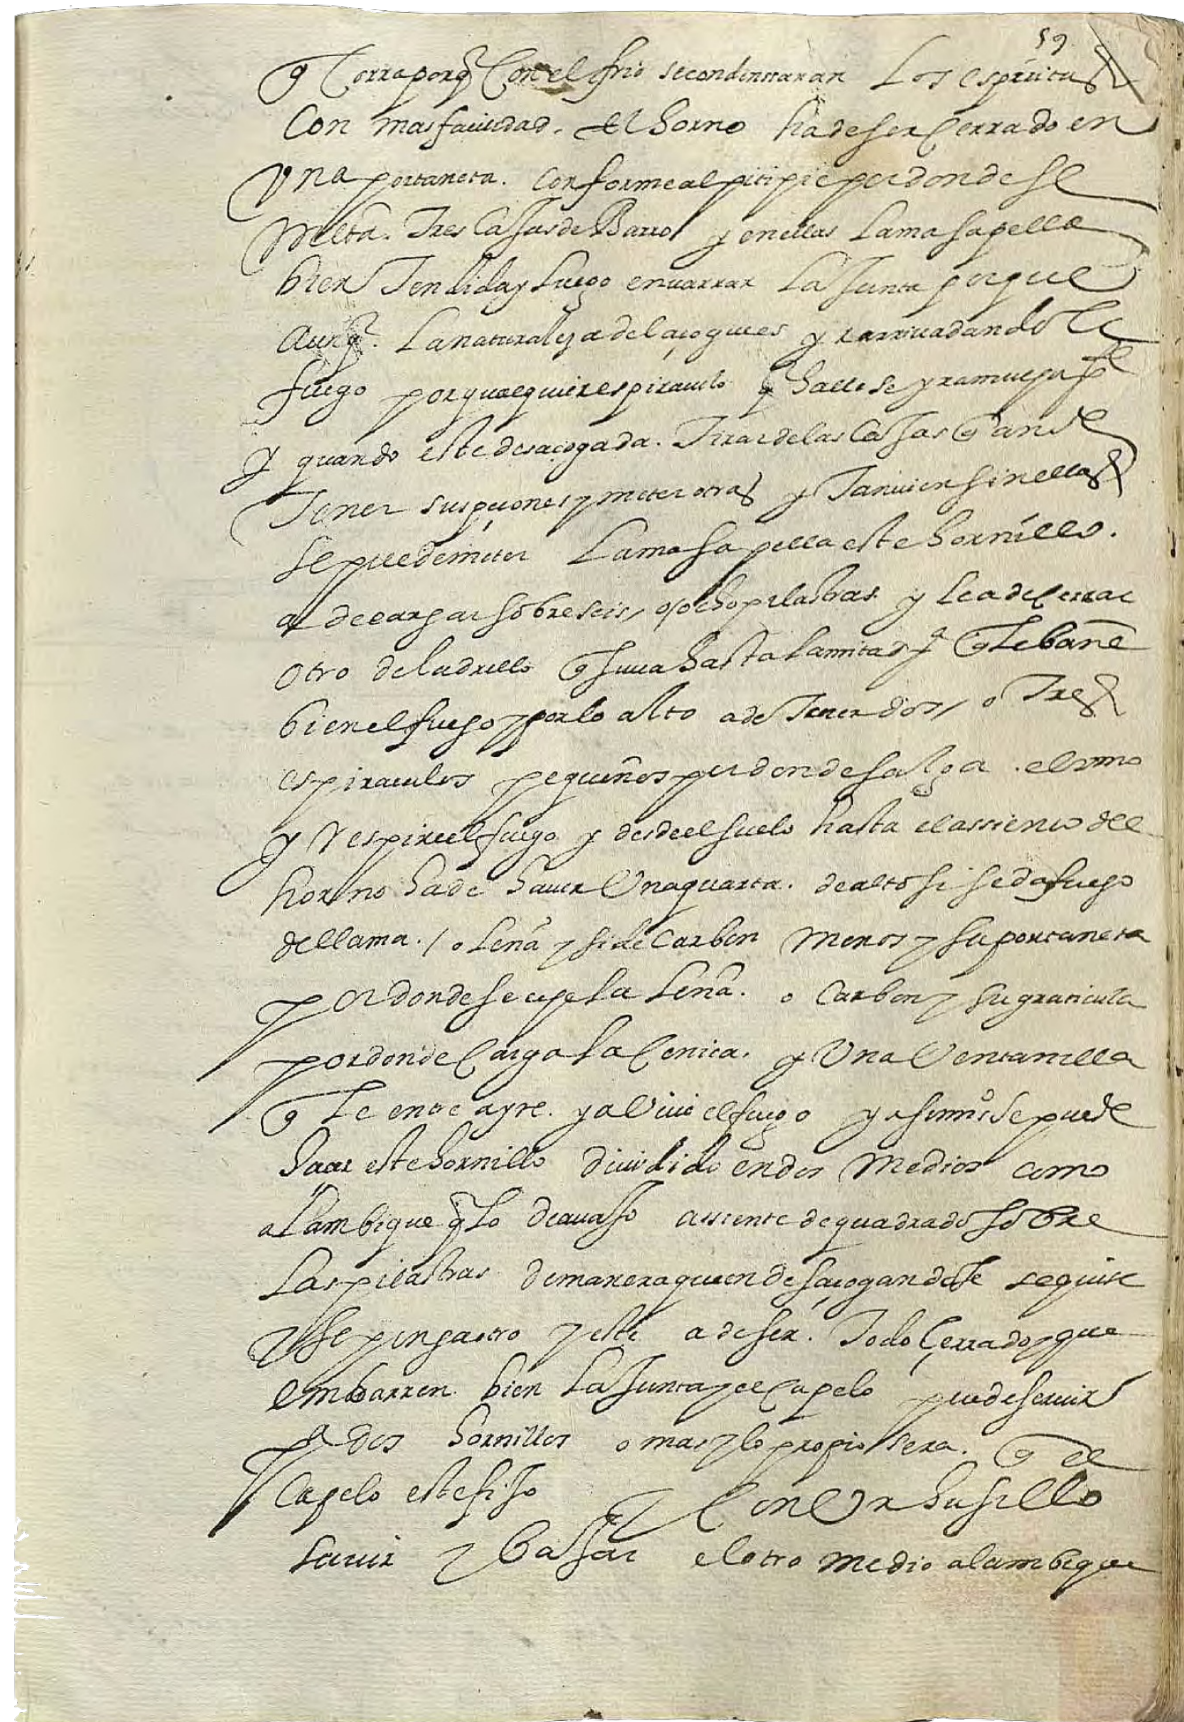 59
q Corra porq Con el frio se condensaran Los espiritus
Con mas facilidad. el horno ha de ser Cerrado en
Una portaneta. conforme al pitipie por donde se
Meta. Tres Casas de Barro y en ellas La masa pella
bien Tendida y luego envarrar La Junta porque
Aunq. La naturaleza del açogue es yr arriva dandole
fuego por qualquier espiraculo q halle se yra
y quando este desaçogada. Tirar de las Casas q an de
Tener sus peçones y meter otras y Tanvien sin ellas
se puede meter La masa pella este hornillo.
a de cargar sobre seis, o ocho pilastras y le a de Cerrar
otro de ladrillo q suva hasta la mitad pa q Le bañe
bien el fuego y por lo alto a de Tener dos, o Tres
espiraculos pequeños por donde salga. el vmo
y respire el fuego y desde el suelo hasta el assiento del
horno ha de haver Una quarta. de alto si se da fuego
de llama. / o Leña y si de Carbon Menos y su portaneta
por donde se cepe La Leña. o Carbon y su graticula
por donde Caiga La Ceniça. y Una Ventanilla
q Le entre ayre. y a Vivie el fuego y asimismo se puede
haçer este hornillo dividido en dos Medios como
alambique q lo de avaxo assiente de quadrado sobre
Las pilastras de manera que en desaçogandose se quite
y se ponga otro y este a de ser. Todo Çerrado y que
embarren bien La Junta y el Capelo puede servir
pa dos hornillos o mas y lo propio sera. q el
Capelo este fixo y Con Un husillo
suvir y Baxar el otro medio alambique